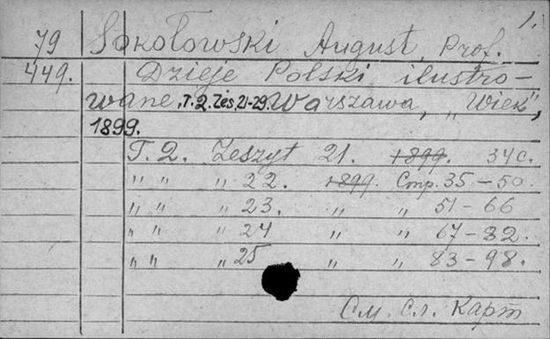 1.
79 Sokołowski August, Prof.
449. Dzieje Polski ilustro-
wane. T. 2. Zes. 21-29. Warszawa, „Wiek”,
1899.
T. 2. Zeszyt 21. 1899. 34 с.
„ „ „ 22. 1899. Стр. 35-50.
„ „ „ 23. „ „ 51-66
„ „ „ 24 „ „ 67-82.
„ „ „ 25 „ „ 83-98.
См. сл. карт